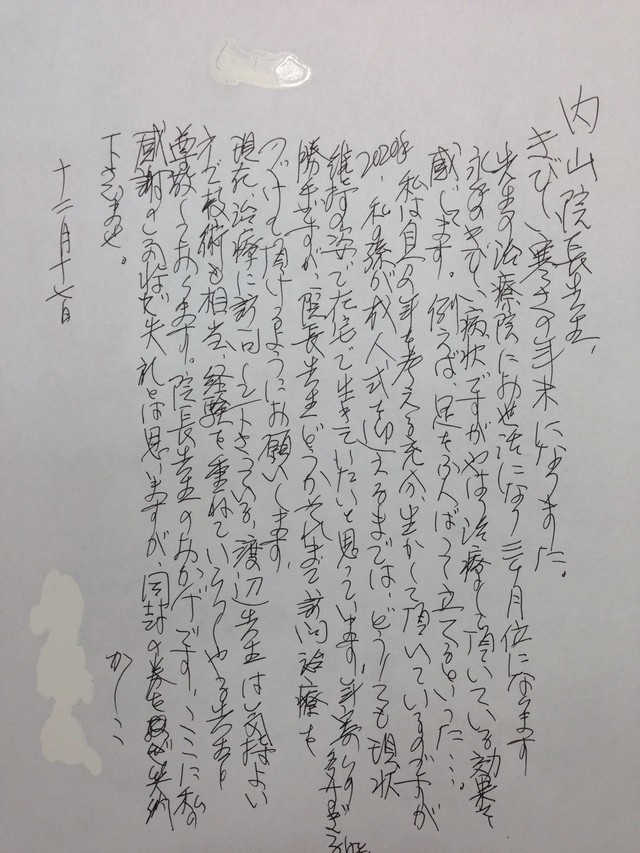 内山院長先生、
きびしい寒さの年末になりました。
先生の治療院にお世話になり三ヶ月位になります
永年のきびしい病状ですがやはり治療して頂いている効果を
感じます。例えば、足をふんばって立てるといった…。
私は自分の年を考えると充分生かして頂いているのですが
2020年、私の孫が成人式を迎えるまでは、どうしても現状
維持の姿で在宅で生きていたいと思っています。
勝手ですが、院長先生どうかそれまで訪問治療を
つづけて頂けるようにお願いします。
現在、治療に訪問して下さっている、渡辺先生は気持よい
方で技術も相当、経験を重ねていらっしゃる先生と
尊敬しております。院長先生のおかげです。ここに私の
感謝のしるしまで失礼とは思いますが、同封の券を
下さいませ。
かしこ
十二月十七日